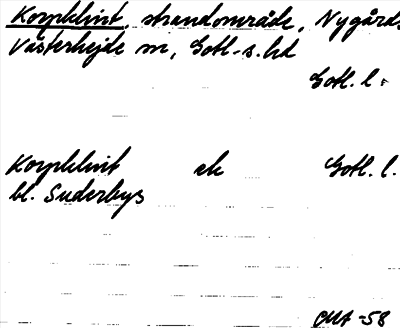 Korpklint, strandområde, Nygårds
Västerhejde sn, Gotl. s. hd
Gotl. l.
Korpklint ek Gotl. l.
bl. Suderbys
-58